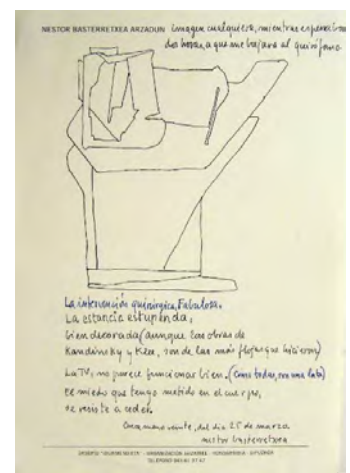 NESTOR BASTERRETXEA ARZADUN
imagen cualquiera, mientras espero
dos horas, a que me bajara al quirófano
La intervención quirúrgica, Fabulosa.
La estancia estupenda,
bien decorada (aunque las obras de
Kandinsky y Klee, son de las más flojas que hicieron)
La TV, no parece funcionar bien. (Como todas, son una lata)
El miedo que tengo metido en el cuerpo,
se resiste a ceder.
del día 25 de marzo
nestor basterretxea